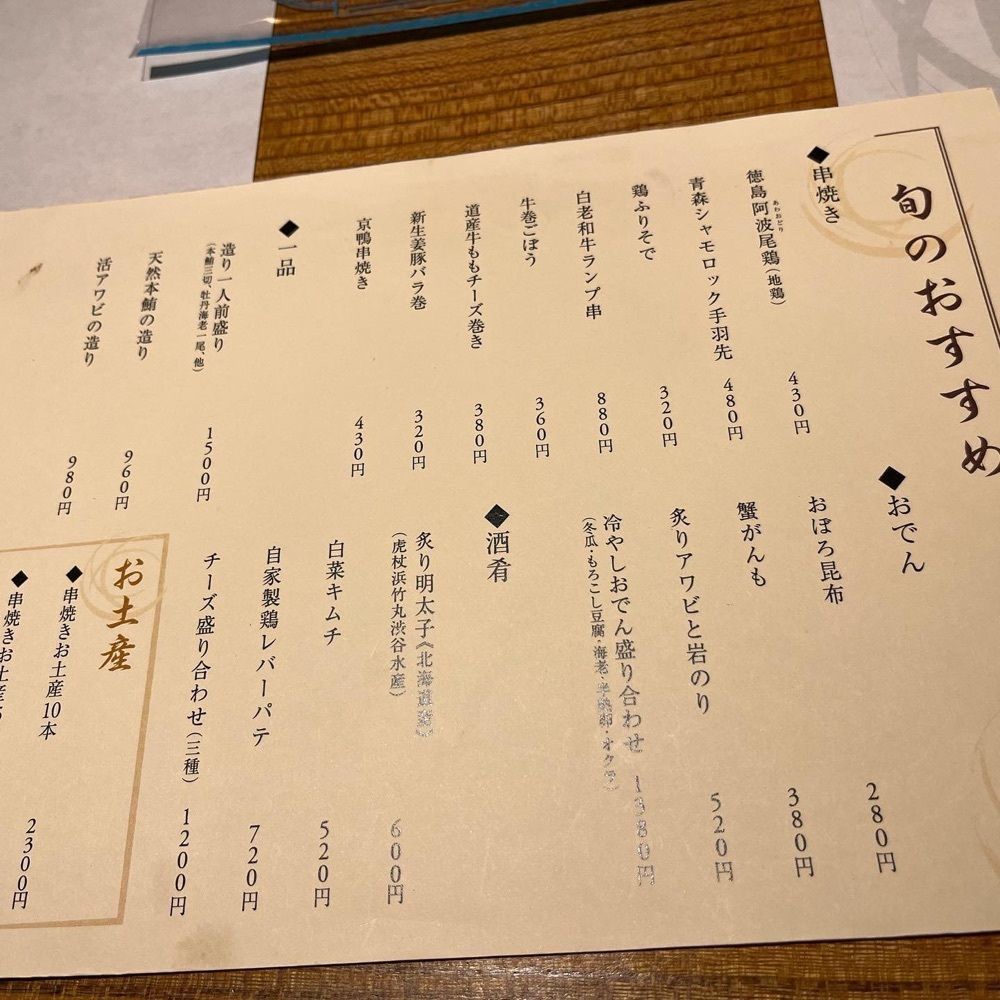 旬のおすすめ
◆串焼き
徳島阿波尾鶏(地鶏) 430円
あわおどり
青森シャモロック手羽先 480円
鶏ふりそで 320円
白老和牛ランプ串 880円
牛巻ごぼう 360円
道産牛ももチーズ巻き 380円
新生姜豚バラ巻 320円
京鴨串焼き 430円
◆一品
造り一人前盛り 1500円
(本鮪三切、牡丹海老一尾、他)
天然本鮪の造り 960円
活アワビの造り 980円
◆おでん
おぼろ昆布 280円
蟹がんも 380円
炙りアワビと岩のり 520円
冷やしおでん盛り合わせ 1380円
(冬瓜・もろこし豆腐・海老・半熟卵・オクラ)
◆酒肴
炙り明太子《北海道産》 600円
(虎杖浜竹丸渋谷水産)
白菜キムチ 520円
自家製鶏レバーパテ 720円
チーズ盛り合わせ(三種) 1200円
お土産
◆串焼きお土産10本 2300円
◆串焼きお土産